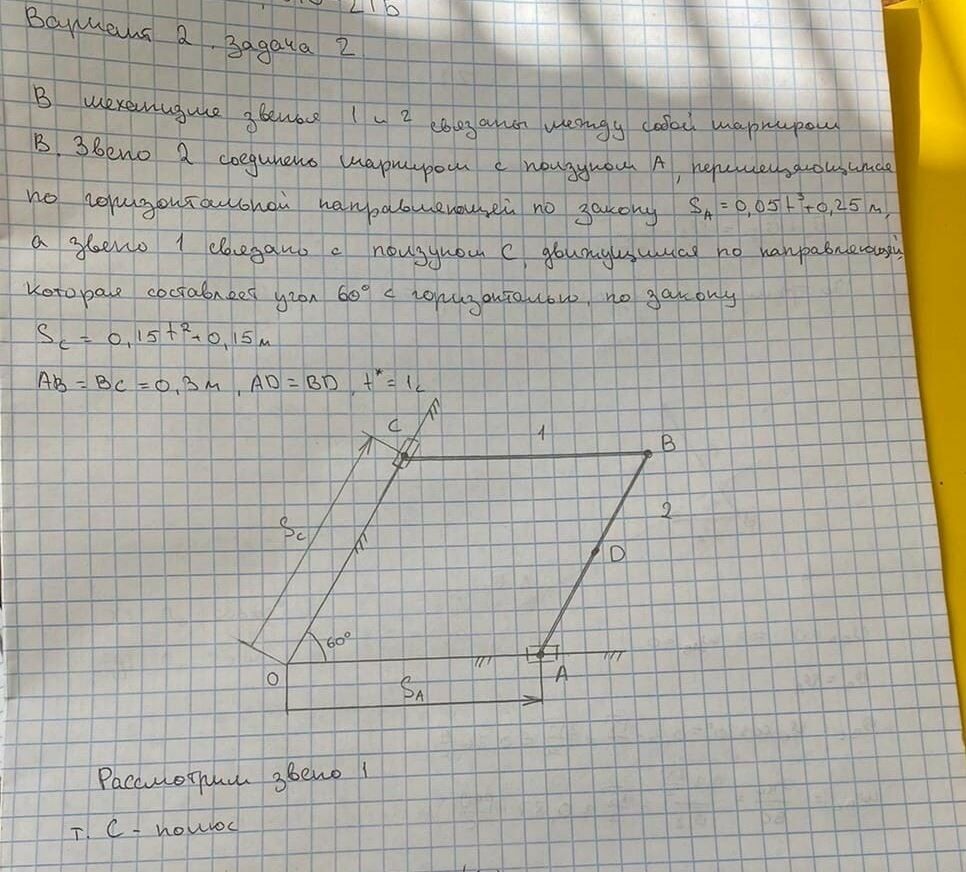 Вариант 2. Задача 2.
В механизме звенья 1 и 2 связаны между собой шарниром
В. Звено 2 соединено шарниром с ползуном А, перемещающимся
по горизонтальной направляющей по закону S_A = 0,05t³+0,25 м,
а звено 1 связано с ползуном С, движущимся по направляющей,
которая составляет угол 60° с горизонталью, по закону
S_C = 0,15t²+0,15 м
AB = BC = 0,3 м, AD = BD, t* = 1с
C
1
B
S_C
2
D
60°
O
S_A
A
Рассмотрим звено 1
т. С - полюс